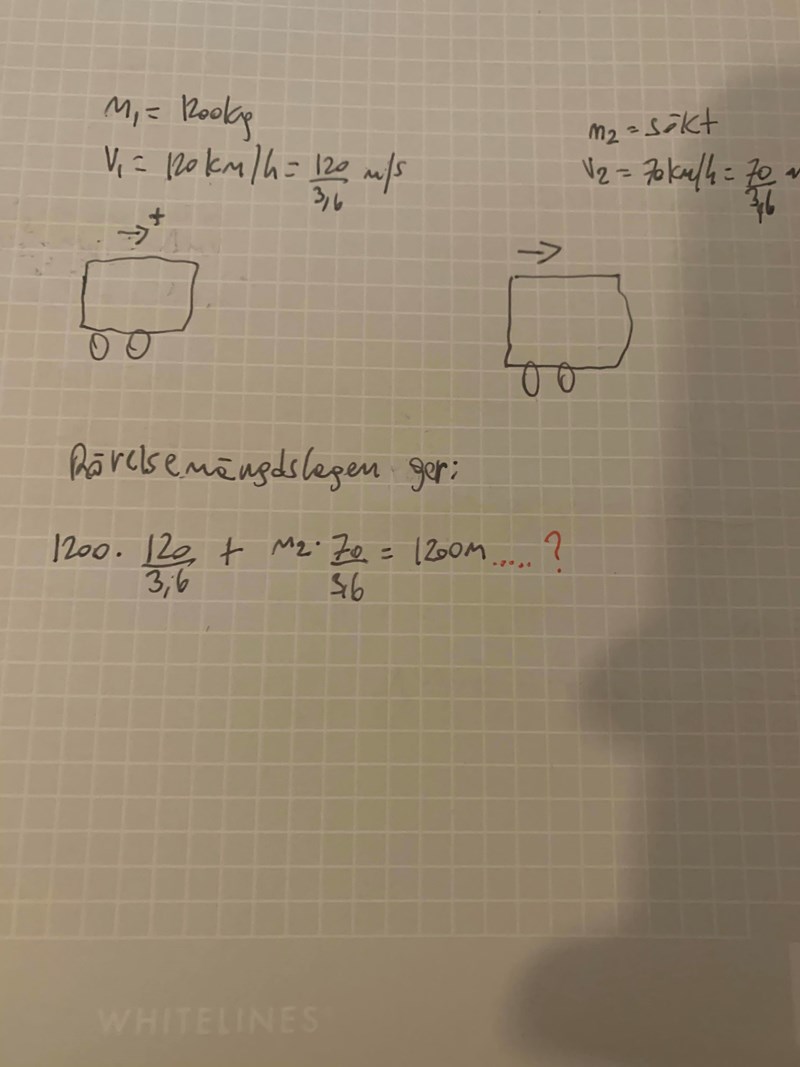 m₁ = 1200kg
V₁ = 120 km/h = 120/3,6 m/s
+
m₂ = sökt
V₂ = 70km/h = 70/3,6
Rörelsemängdslagen ger:
1200 · 120/3,6 + m₂ · 70/3,6 = 1200m.....?
WHITELINES